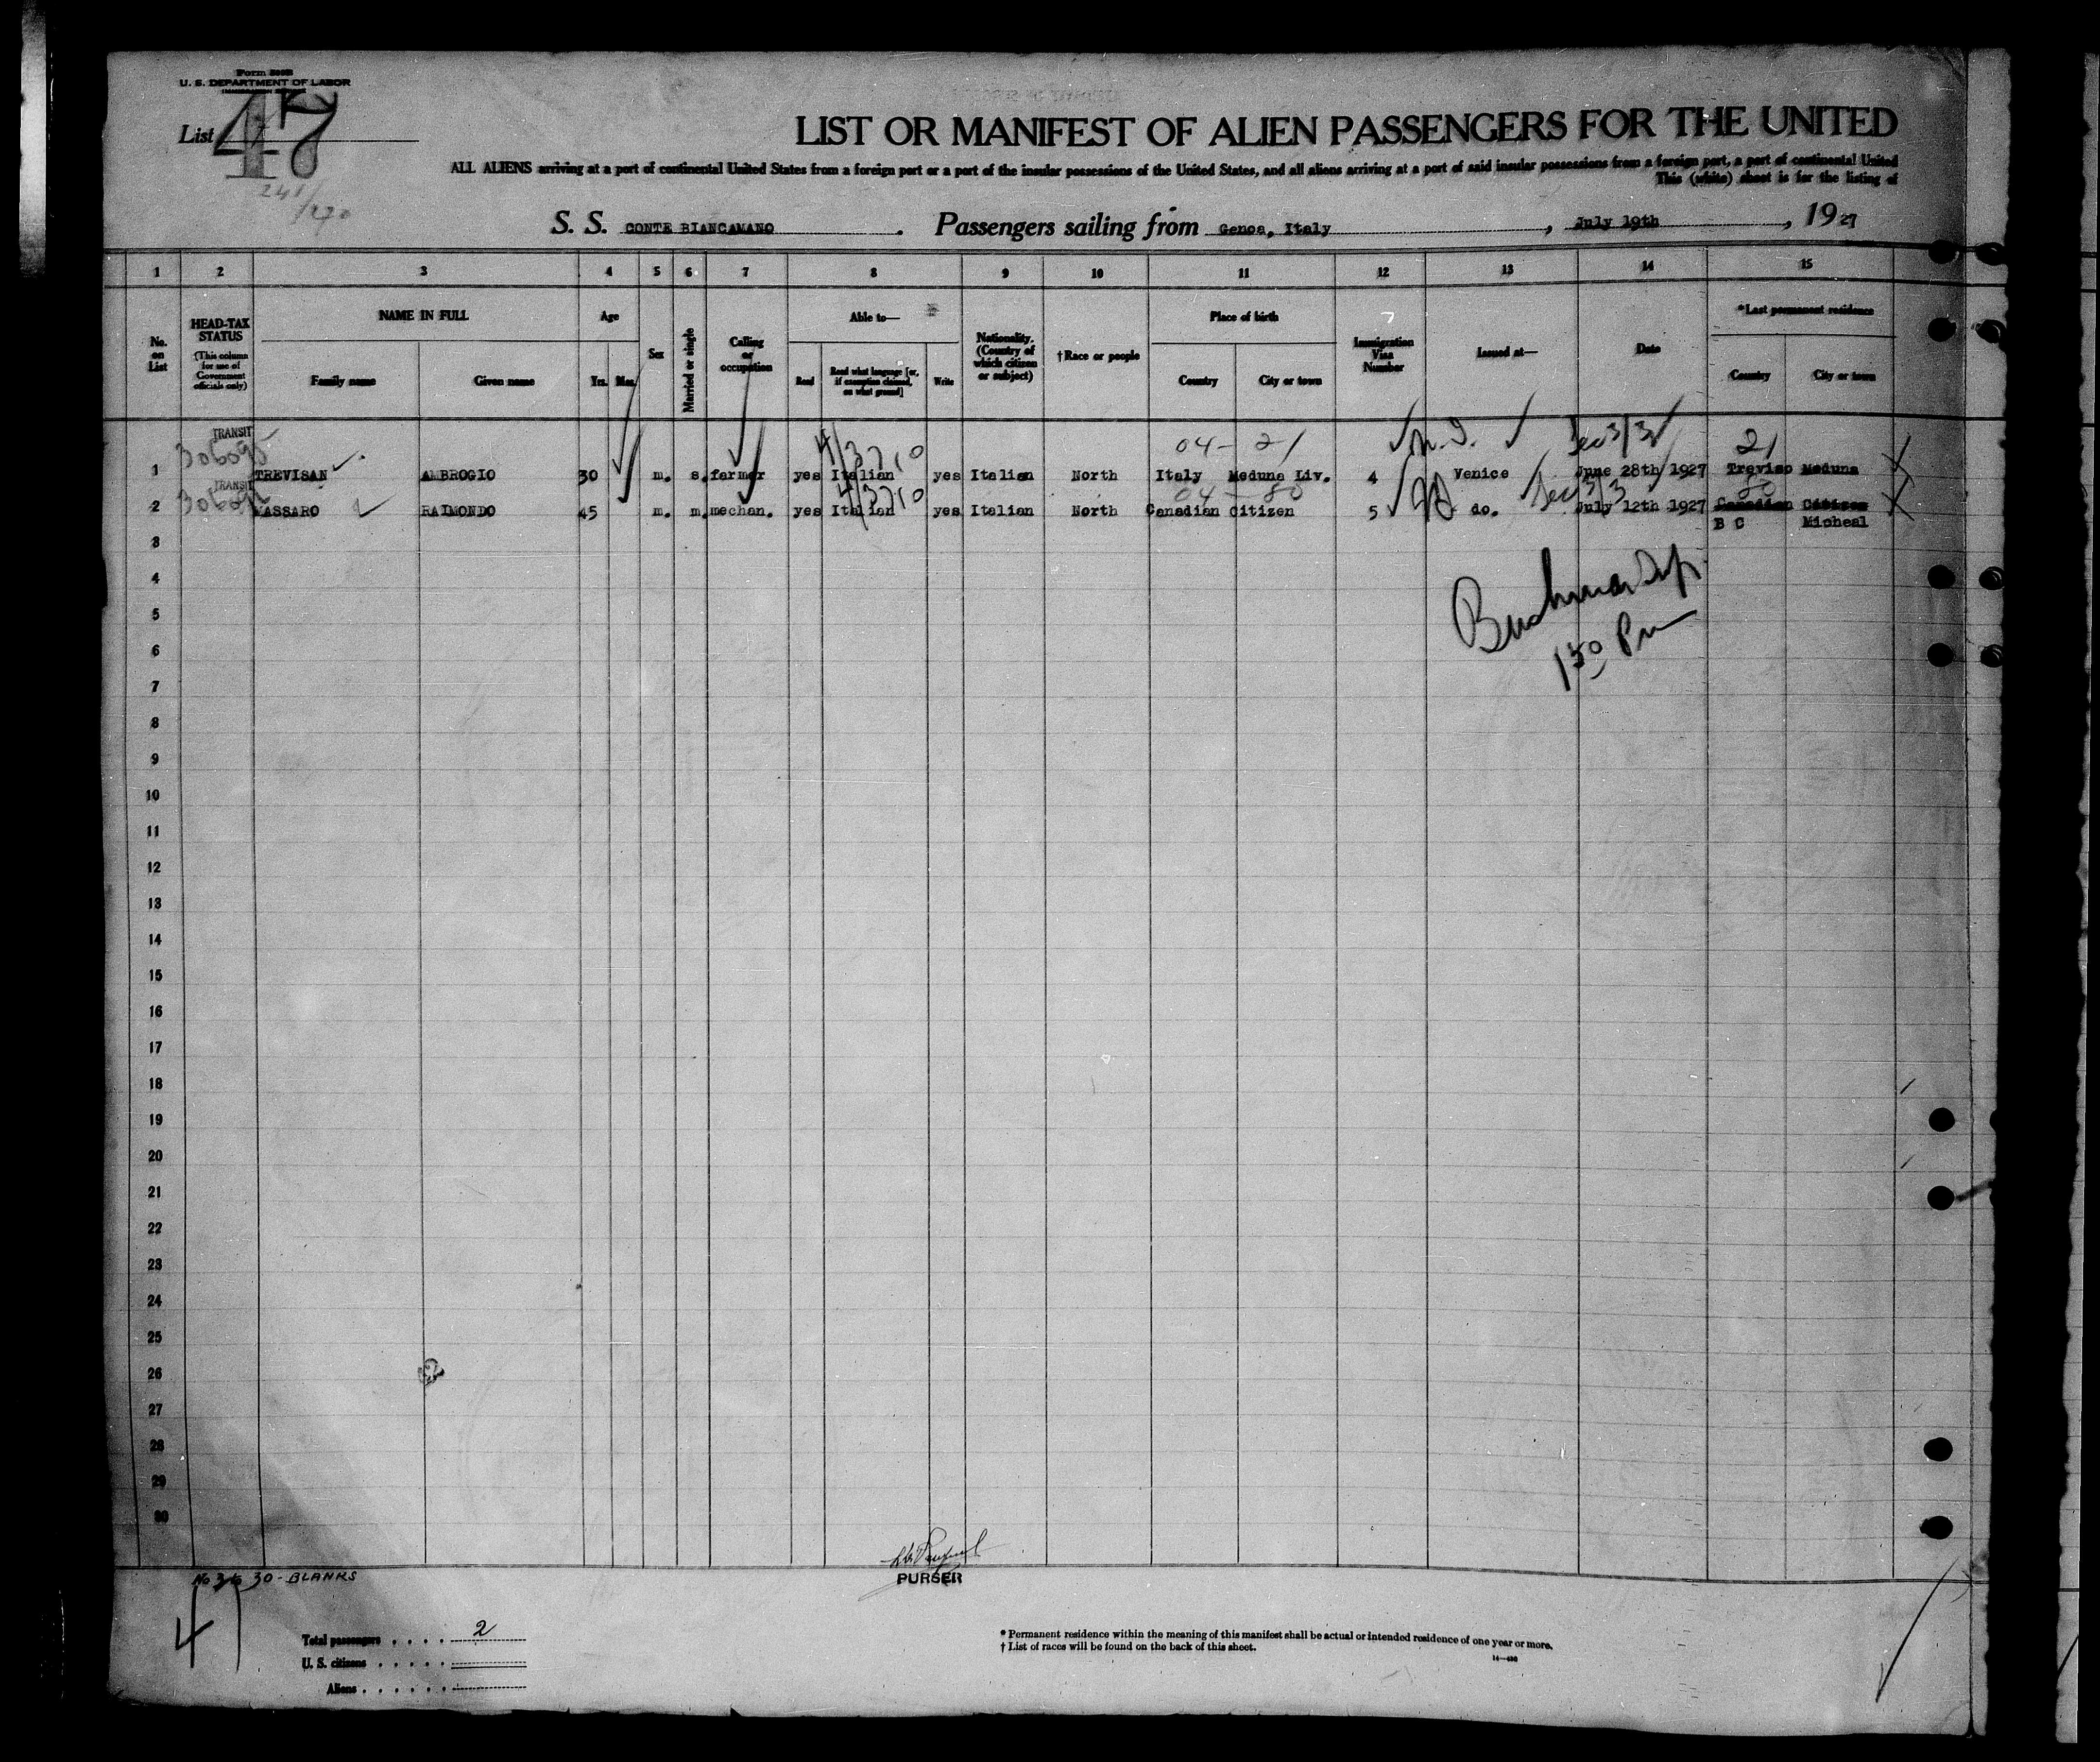 U. S. DEPARTMENT OF LABOR
List 47
LIST OR MANIFEST OF ALIEN PASSENGERS FOR THE UNITED
ALL ALIENS arriving at a port of continental United States from a foreign port or a port of the insular possessions of the United States, and all aliens arriving at a port of said insular possessions from a foreign port, a port of continental United
This (white) sheet is for the listing of
S. S. CONTE BIANCAMANO . Passengers sailing from Genoa, Italy , July 19th , 1927
1 2 3 4 5 6 7 8 9 10 11 12 13 14 15
No. on List
HEAD-TAX STATUS (This column for use of Government officials only)
NAME IN FULL
Family name Given name
Age
Yrs. Mos.
Sex
Married or single
Calling or occupation
Able to—
Read Read what language [or, if exemption claimed, on what ground] Write
Nationality. (Country of which citizen or subject)
†Race or people
Place of birth
Country City or town
Immigration Visa Number
Issued at—
Date
*Last permanent residence
Country City or town
TRANSIT 04 - 21 21
1 TREVISAN AMBROGIO 30 m. s. farmer yes Italian yes Italian North Italy Meduna Liv. 4 Venice June 28th 1927 Treviso Meduna
TRANSIT 04 - 80 80
2 MASSARO RAIMONDO 45 m. m. mechan. yes Italian yes Italian North Canadian Citizen 5 do. July 12th 1927 Canadian Citizen
B C Micheal
3
4
5
6
130 Pm
7
8
9
10
11
12
13
14
15
16
17
18
19
20
21
22
23
24
25
26
27
28
29
30
PURSER
No 3 to 30 - BLANKS
47
Total passengers . . . . 2
U. S. citizens . . . . .
Aliens . . . . . .
* Permanent residence within the meaning of this manifest shall be actual or intended residence of one year or more.
† List of races will be found on the back of this sheet.